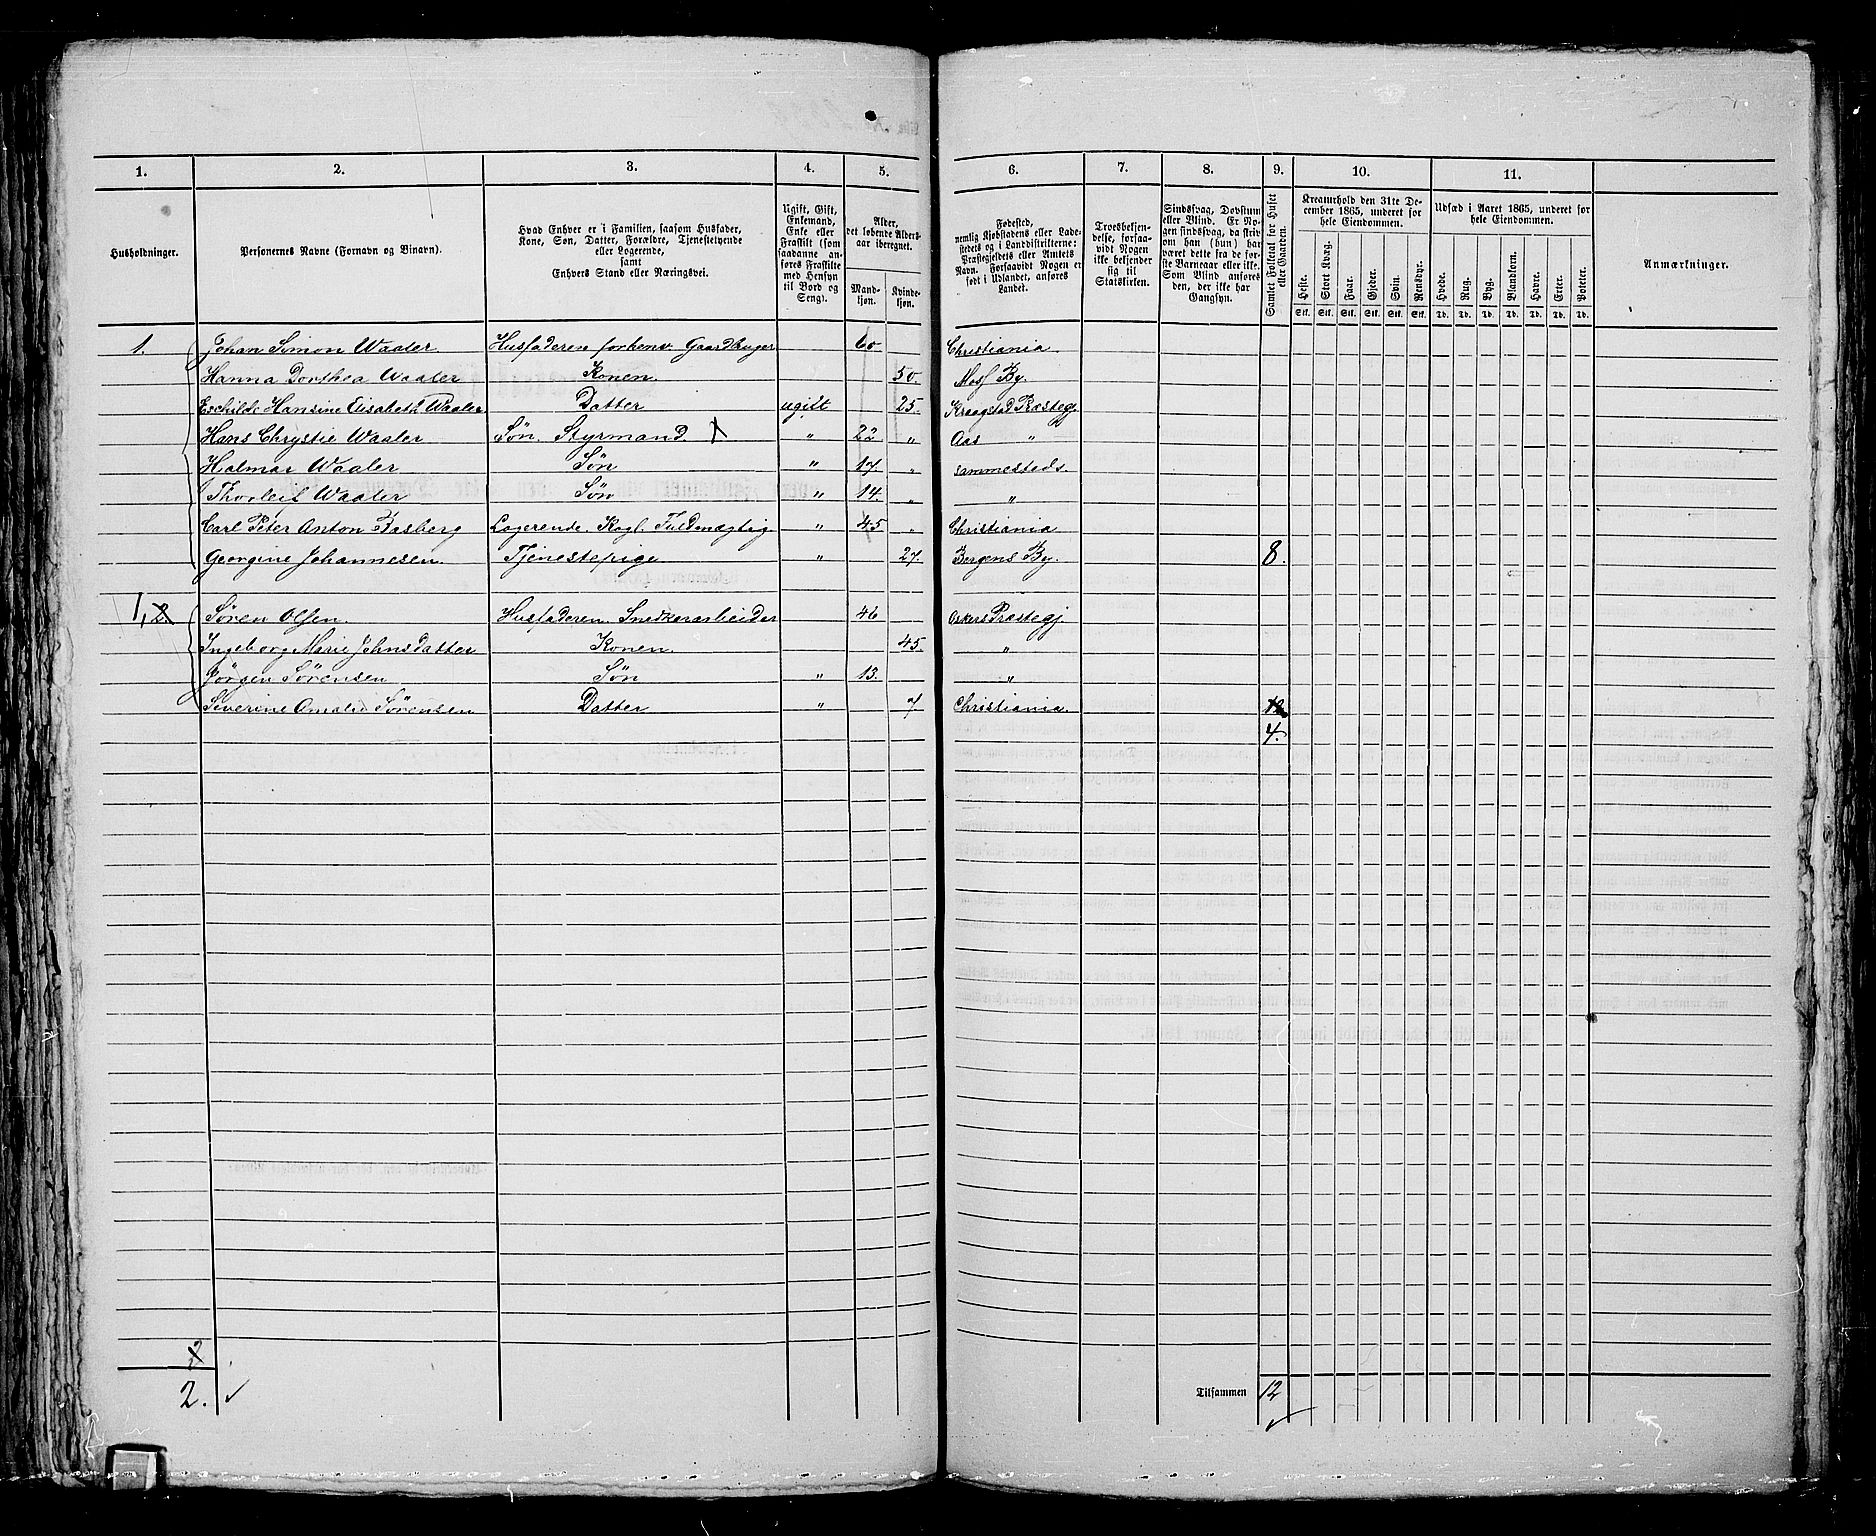 1. 2. 3. 4. 5. 6. 7. 8. 9. 10. 11.
Husholdninger.
Personernes Navne (Fornavn og Binavn).
Hvad Enhver er i Familien, saasom Husfader,
Kone, Søn, Datter, Forældre, Tjenestetyende
eller Logerende,
samt
Enhvers Stand eller Næringsvei.
Ugift, Gift,
Enkemand,
Enke eller
Fraskilt (som
saadanne an-
føres Fraskilte
med Hensyn
til Bord og
Seng).
Alder,
det løbende Alders-
aar iberegnet.
Mand-
kjøn.
Kvinde-
kjøn.
Fødested,
nemlig Kjøbstadens eller Lade-
stedets og i Landdistrikterne:
Præstegjeldets eller Amtets
Navn. Forsaavidt Nogen er
født i Udlandet, anføres
Landet.
Troesbekjen-
delse, forsaa-
vidt Nogen
ikke bekjender
sig til
Statskirken.
Sindssvag, Døvstum
eller Blind. Er No-
gen sindssvag, da skriv
om han (hun) har
været dette fra de før-
ste Barneaar eller ikke.
Som Blind anføres
den, der ikke har
Gangsyn.
Samlet Folketal for Huset
eller Gaarden.
Kreaturhold den 31te De-
cember 1865, underet for
hele Eiendommen.
Heste. Stort Kvæg. Faar. Gjeder. Svin. Rensdyr.
Stk. Stk. Stk. Stk. Stk. Stk.
Udsæd i Aaret 1865, underet for
hele Eiendommen.
Hvede. Rug. Byg. Blandkorn. Havre. Erter. Poteter.
Td. Td. Td. Td. Td. Td. Td.
Anmærkninger.
1. Johan Simon Waaler Husfaderen forhenv Gaardbruger 60 Christiania
Hanna Dorthea Waaler Konen. 50. Moss By.
Hansine Elisabeth Waaler Datter ugift 25. Kraagstad Præstegj
Hans Chrystie Waaler Søn. Styrmand. X " 22 " Aas "
Halmar Waaler Søn " 17. " sammesteds.
Thorleif Waaler Søn " 14. " "
Carl Peter Anton Logerende. Kogl. Fuldmægtig " 45 " Christiania
Georgine Johannesen. Tjenestepige " 27. Bergens By. 8.
1, 2 Søren Olsen. Husfaderen. Snedkerarbeider 46 Askers Præstegj.
Ingeborg Marie Johnsdatter Konen. 45. "
Jörgen Sörensen Søn " 13. "
Severine Amalie Sörensen Datter " 7 Christiania. 12
4.
2
2. ✓
Tilsammen 12
✓